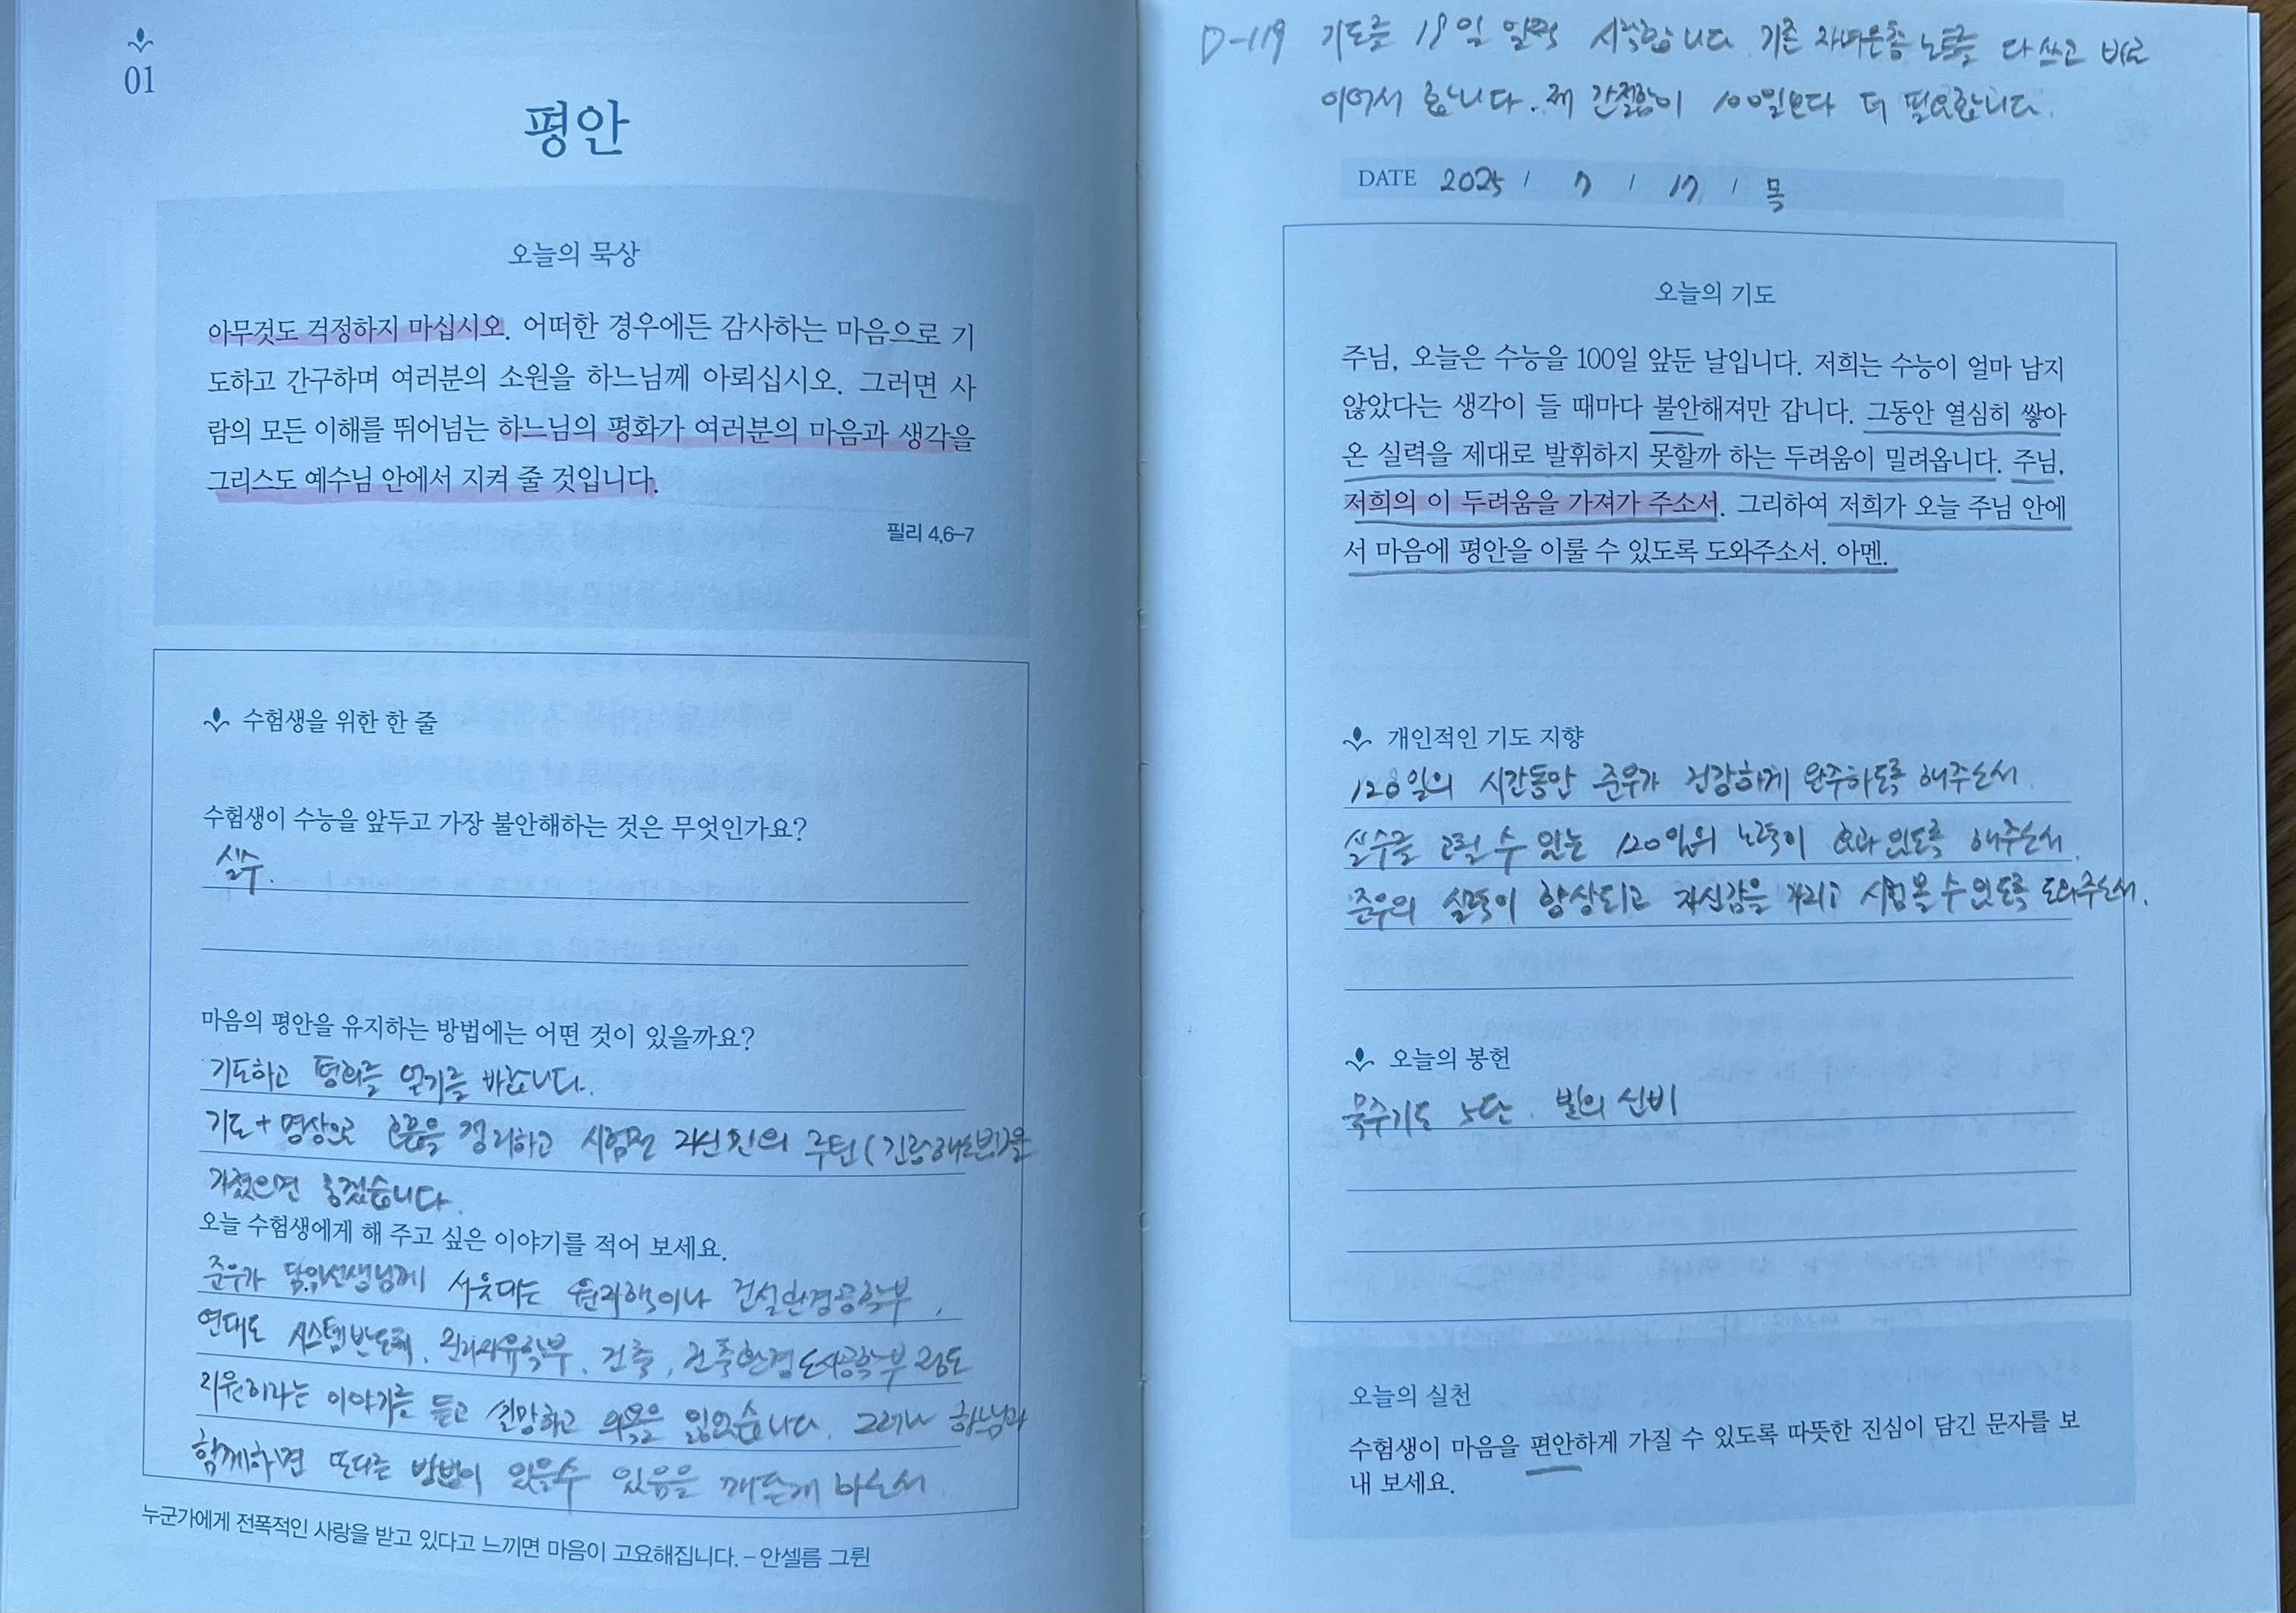 01
평안
오늘의 묵상
아무것도 걱정하지 마십시오. 어떠한 경우에든 감사하는 마음으로 기
도하고 간구하며 여러분의 소원을 하느님께 아뢰십시오. 그러면 사
람의 모든 이해를 뛰어넘는 하느님의 평화가 여러분의 마음과 생각을
그리스도 예수님 안에서 지켜 줄 것입니다.
필리 4,6–7
수험생을 위한 한 줄
수험생이 수능을 앞두고 가장 불안해하는 것은 무엇인가요?
실수.
마음의 평안을 유지하는 방법에는 어떤 것이 있을까요?
기도하고 평화를 얻기를 바랍니다.
기도+명상으로 호흡을 정리하고 시험전 자신만의 루틴(긴장해소법)을
가졌으면 좋겠습니다.
오늘 수험생에게 해 주고 싶은 이야기를 적어 보세요.
준우가 담임선생님께 서울대는 원자핵이나 건설환경공학부,
연대도 시스템반도체, 전기전자공학부, 건축, 건축환경도시공학부 정도
지원하라는 이야기를 듣고 실망하고 의욕을 잃었습니다. 그러나 하느님과
함께하면 또다른 방법이 있을수 있음을 깨닫게 하소서.
누군가에게 전폭적인 사랑을 받고 있다고 느끼면 마음이 고요해집니다. – 안셀름 그륀
D-119 기도를 19일 일찍 시작합니다. 기존 자녀은총 노트를 다 쓰고 바로
이어서 합니다. 제 간절함이 100일보다 더 필요합니다.
DATE 2025 / 7 / 17 / 목
오늘의 기도
주님, 오늘은 수능을 100일 앞둔 날입니다. 저희는 수능이 얼마 남지
않았다는 생각이 들 때마다 불안해져만 갑니다. 그동안 열심히 쌓아
온 실력을 제대로 발휘하지 못할까 하는 두려움이 밀려옵니다. 주님,
저희의 이 두려움을 가져가 주소서. 그리하여 저희가 오늘 주님 안에
서 마음에 평안을 이룰 수 있도록 도와주소서. 아멘.
개인적인 기도 지향
120일의 시간동안 준우가 건강하게 완주하도록 해주소서.
실수를 고칠 수 있는 120일의 노력이 효과있도록 해주소서.
준우의 실력이 향상되고 자신감을 가지고 시험볼 수 있도록 도와주소서.
오늘의 봉헌
묵주기도 5단. 빛의 신비
오늘의 실천
수험생이 마음을 편안하게 가질 수 있도록 따뜻한 진심이 담긴 문자를 보
내 보세요.